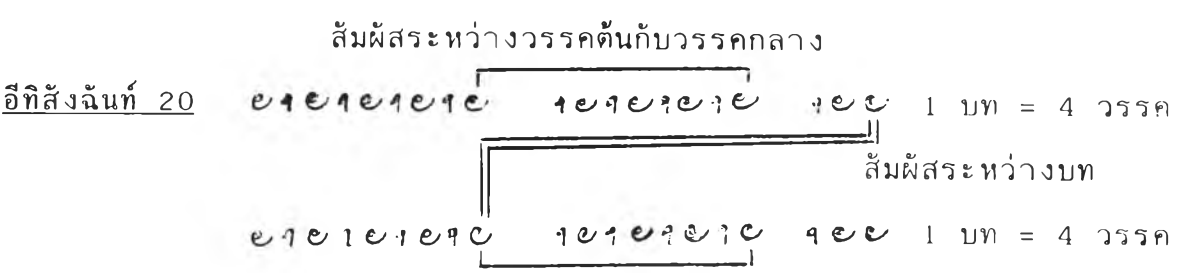 สัมผัสระหว่างวรรคต้นกับวรรคกลาง
อีทิสังฉันท์ 20 1 บท = 4 วรรค
สัมผัสระหว่างบท
1 บท = 4 วรรค